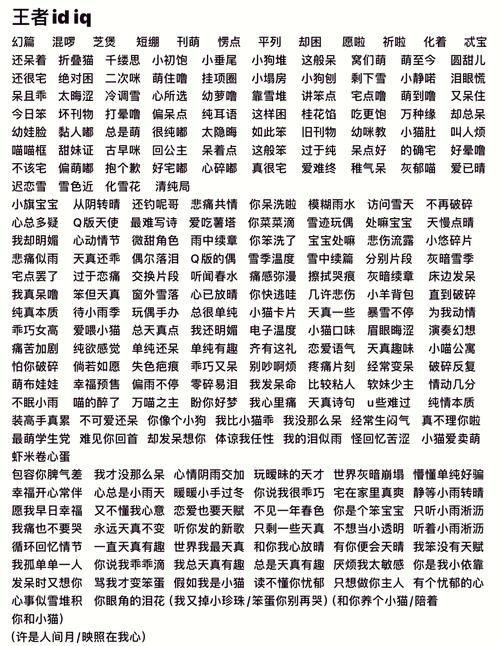 王者id iq
幻篇 混啰 芝煲 短绷 刊萌 愣点 平列 却困 愿啦 祈啦 化着 忒宝
还呆着 折叠猫 千缕思 小初饱 小垂尾 小狗堆 这般呆 窝们萌 萌至今 圆甜儿
还很宅 绝对困 二次咪 萌住噜 挂项圈 小塌房 小狗刨 剩下雪 小静喏 泪眼慌
呆且乖 太晦涩 冷调雪 心所选 幼萝噜 靠雪堆 讲笨点 宅点噜 萌到噜 又呆住
今日笨 坏刊物 打晕噜 偏呆点 纯耳语 这样困 桂花馅 吃更饱 万种缘 却总呆
幼娃脸 黏人嘟 总是萌 很纯嘟 太隐晦 如此笨 旧刊物 幼咪教 小猫肚 叫人烦
喵喵框 甜妹证 古早咪 回公主 呆着点 这般笨 过于纯 呆点好 的确宅 好晕噜
不该宅 偏萌嘟 抱个歉 好宅嘟 心碎嘟 真很宅 爱难终 稚气呆 灰郁喵 爱已晴
迟恋雪 雪色近 化雪花 清纯局
小旗宝宝 从阴转晴 还钓呢哥 悲痛共情 你呆洗啦 模糊雨水 访问雪天 不再破碎
心总多疑 Q版天使 最难写诗 爱吃薯塔 你菜菜滴 雪迹玩偶 处嘛宝宝 天慢点晴
我却明媚 心动情节 微甜角色 雨中续章 你笨洗了 宝宝处嘛 悲伤流露 小悠碎片
悲痛似雨 天真还乖 偶尔落泪 Q版的偶 雪季温度 雪中续篇 分别片段 灰暗雪季
宅点罢了 过于恋痛 交换片段 听闻春水 痛感弥漫 擦拭哭痕 灰暗续章 床边发呆
我真呆噜 笨但天真 窗外雪落 心已放晴 你快逃哇 几许悲伤 小羊背包 直到破碎
纯真本质 待小雨季 玩偶手办 总很单纯 小猫卡片 天真一些 暴雪不停 为我动情
乖巧女高 爱喂小猫 总天真点 我还明媚 电子温度 小猫口味 眉眼晦涩 演奏幻想
痛苦加剧 纯欲感觉 单纯还呆 单纯有趣 齐有这礼 恋爱语气 天真趣味 小喵公寓
怕你破碎 倘若如愿 失色疤痕 乖巧又呆 别吵啊烦 疼痛片刻 经常变呆 破碎反复
萌布娃娃 幸福预售 偏雨不停 零碎易泪 我发呆命 比较粘人 软妹少主 情动几分
不眠小雨 喵的醉了 万喵之主 盼你好梦 我心里痛 天真诗句 u些难过 纯情本质
装高手真累 不可爱还呆 你像个小狗 我比小猫乖 我没那么呆 经常生闷气 真不理你啦
最萌学生党 难见你回首 却发呆想你 体谅我任性 我的泪似雨 怪回忆苦涩 小猫爱卖萌
虾米卷心蛋
包容你脾气差 我才没那么呆 心情阴雨交加 玩暧昧的天才 世界灰暗崩塌 懵懂单纯好骗
幸福开心常伴 心总是小雨天 暖暖小手过冬 你说我很乖巧 宅在家里真爽 静等小雨转晴
愿我早日幸福 又不懂我心意 恋爱也要天赋 不见一年春色 你是个笨宝宝 只听小雨淅沥
我痛也不要哭 永远天真不变 听你发的新歌 只剩一些天真 不想当小透明 听着小雨淅沥
循环回忆情节 一直天真有趣 世界我最天真 和你我心放晴 有你便会天晴 我笨没有天赋
我孤单单一人 你说我乖乖滴 我总天真有趣 总是天真有趣 厌烦我太敏感 你是我小依靠
发呆时又想你 骂我才变笨蛋 假如我是小猫 读不懂你忧郁 只想做你主人 有个忧郁的心
心事似雪堆积 你眼角的泪花 (我又掉小珍珠/笨蛋你别再哭) (和你养个小猫/陪着
你和小猫)
(许是人间月/映照在我心)